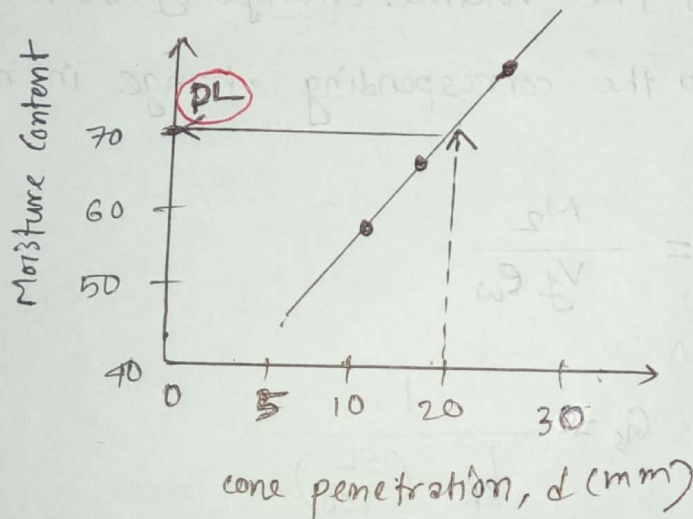 Moisture Content
PL
70
60
50
40
0 5 10 20 30
cone penetration, d (mm)